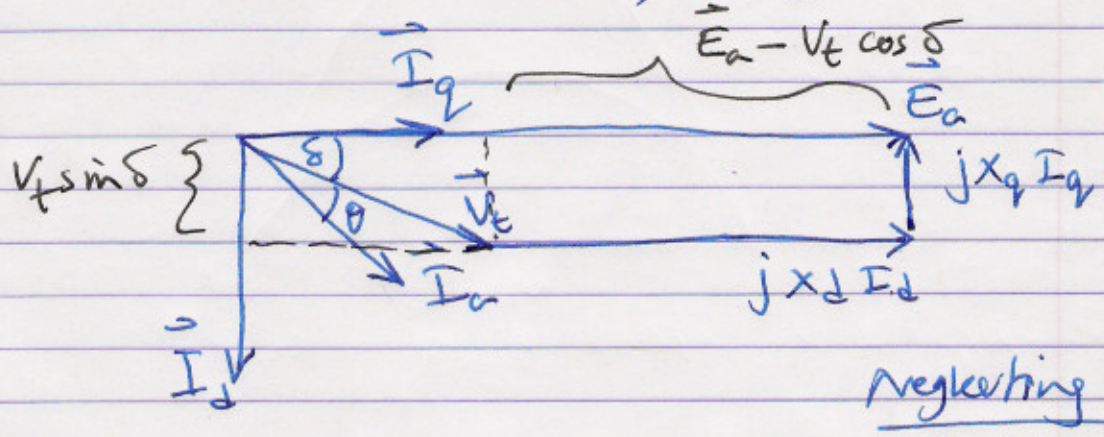 E⃗a - Vt cos δ
I⃗q
E⃗a
Vt sin δ
δ
V⃗t
jXq Iq
θ
I⃗a
jXd Id
I⃗d
Neglecting